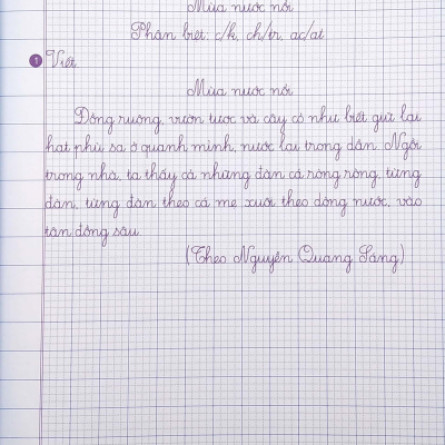 Mùa nước nổi
Phân biệt: c/k, ch/tr, ac/at
1 Viết
Mùa nước nổi
Đồng ruộng, vườn tược và cây cỏ như biết giữ lại
hạt phù sa ở quanh mình, nước lại trong dần. Ngồi
trong nhà, ta thấy cả những đàn cá ròng ròng, từng
đàn, từng đàn theo cá mẹ xuôi theo dòng nước, vào
tận đồng sâu.
(Theo Nguyễn Quang Sáng)